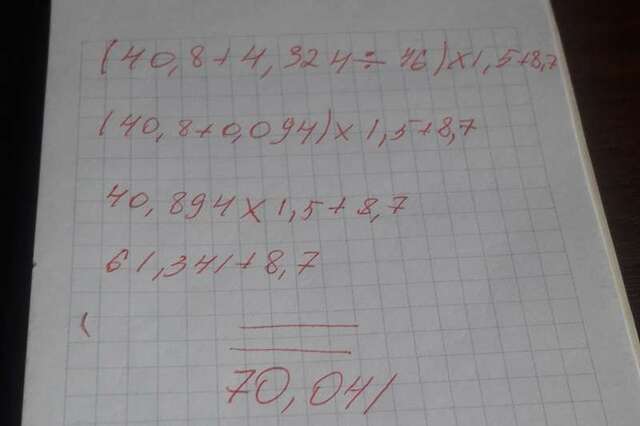 (40,8+4,324÷46)×1,5+8,7
(40,8+0,094)×1,5+8,7
40,894×1,5+8,7
61,341+8,7
(
70,041